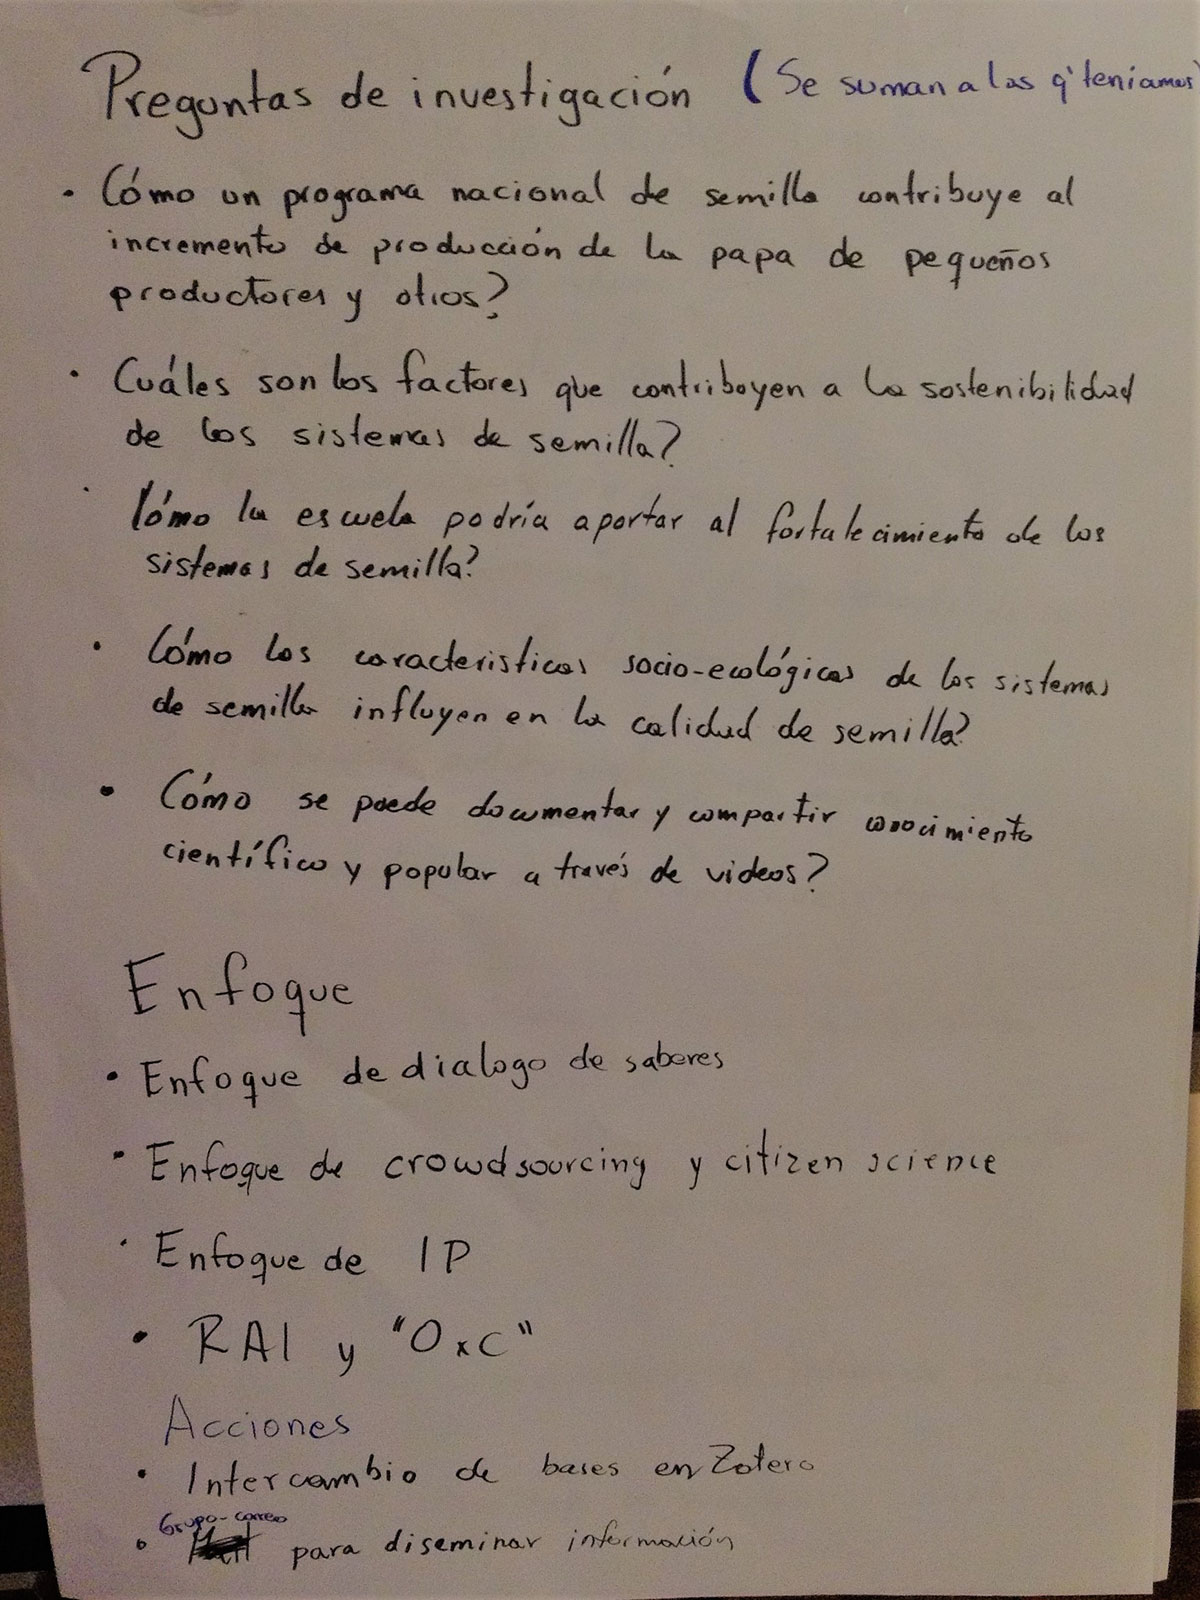 Preguntas de investigación (Se suman a las q' teníamos)
• Cómo un programa nacional de semilla contribuye al
incremento de producción de la papa de pequeños
productores y otros?
• Cuáles son los factores que contribuyen a la sostenibilidad
de los sistemas de semilla?
• Cómo la escuela podría aportar al fortalecimiento de los
sistemas de semilla?
• Cómo las caracteristicas socio-ecológicas de los sistemas
de semilla influyen en la calidad de semilla?
• Cómo se puede documentar y compartir conocimiento
científico y popular a través de videos?
Enfoque
• Enfoque de dialogo de saberes
• Enfoque de crowdsourcing y citizen science
• Enfoque de IP
• RAI y "OxC"
Acciones
• Intercambio de bases en Zotero
Grupo-correo
• para diseminar información